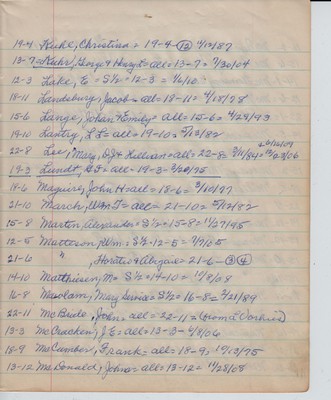 19-4 Kuhl, Christina = 19-4-(12) 4/13/87
13-7 Kuhr, George & Henry = all = 13-7 = 7/30/04
12-3 Lake, E = S½ = 12-3 = 1/6/10
18-11 Landeburg, Jacob = all = 18-11 = 4/18/78
15-6 Lange, Johan & Emily = all = 15-6 = 4/28/93
19-10 Lantry, L F = all = 19-10 = 5/12/82
22-8 Lee, Mary, D.J & Killian = all = 22-8 = 3/11/84
19-3 Lundt, G F = all = 19-3 = 3/20/75
18-6 Maguire, John H = all = 18-6 = 5/10/77
21-10 March, Wm T = all = 21-10 = 5/12/82
15-8 Martin, Alexander = S½ = 15-8 = 11/27/95
12-5 Matteson, Wm = S½ - 12-5 = 7/7/05
21-6 " , Horatio & Abigail = 21-6 - (3)(4)
14-10 Matthiesen, M = S½ = 14-10 = 11/8/08
16-8 Mawlam, Mary Teresa = S½ = 16-8 = 2/21/89
22-11 McBride, John = all = 22-11 =
13-3 McCracken, J E = all = 13-3 = 2/8/06
18-9 McCumber, Frank = all = 18-9 = 10/13/75
13-12 McDonald, John = all = 13-12 = 11/28/08